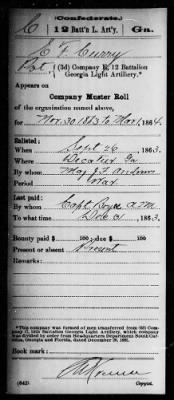 (Confederate.)
C 12 Batt'n L. Art'y. Ga.
C F Curry
Pvt, (3d) Company E, 12 Battalion
Georgia Light Artillery.*
Appears on
Company Muster Roll
of the organization named above,
for Nov. 30 1863 to Mar 1 , 1864.
Enlisted:
When Sept 26 , 1863.
Where Decatur Ga
By whom Maj J F
Period War
Last paid:
By whom Capt A.M.
To what time Dec 31 , 1863.
Bounty paid $ 100; due $ 100
Present or absent Present
Remarks:
*This company was formed of men transferred from (2d) Company
12th Battalion Georgia Light Artillery, which company
was divided by order from Headquarters Department South Carolina,
Georgia and Florida, dated December 29, 1862.
Book mark:
(642) Copyist.